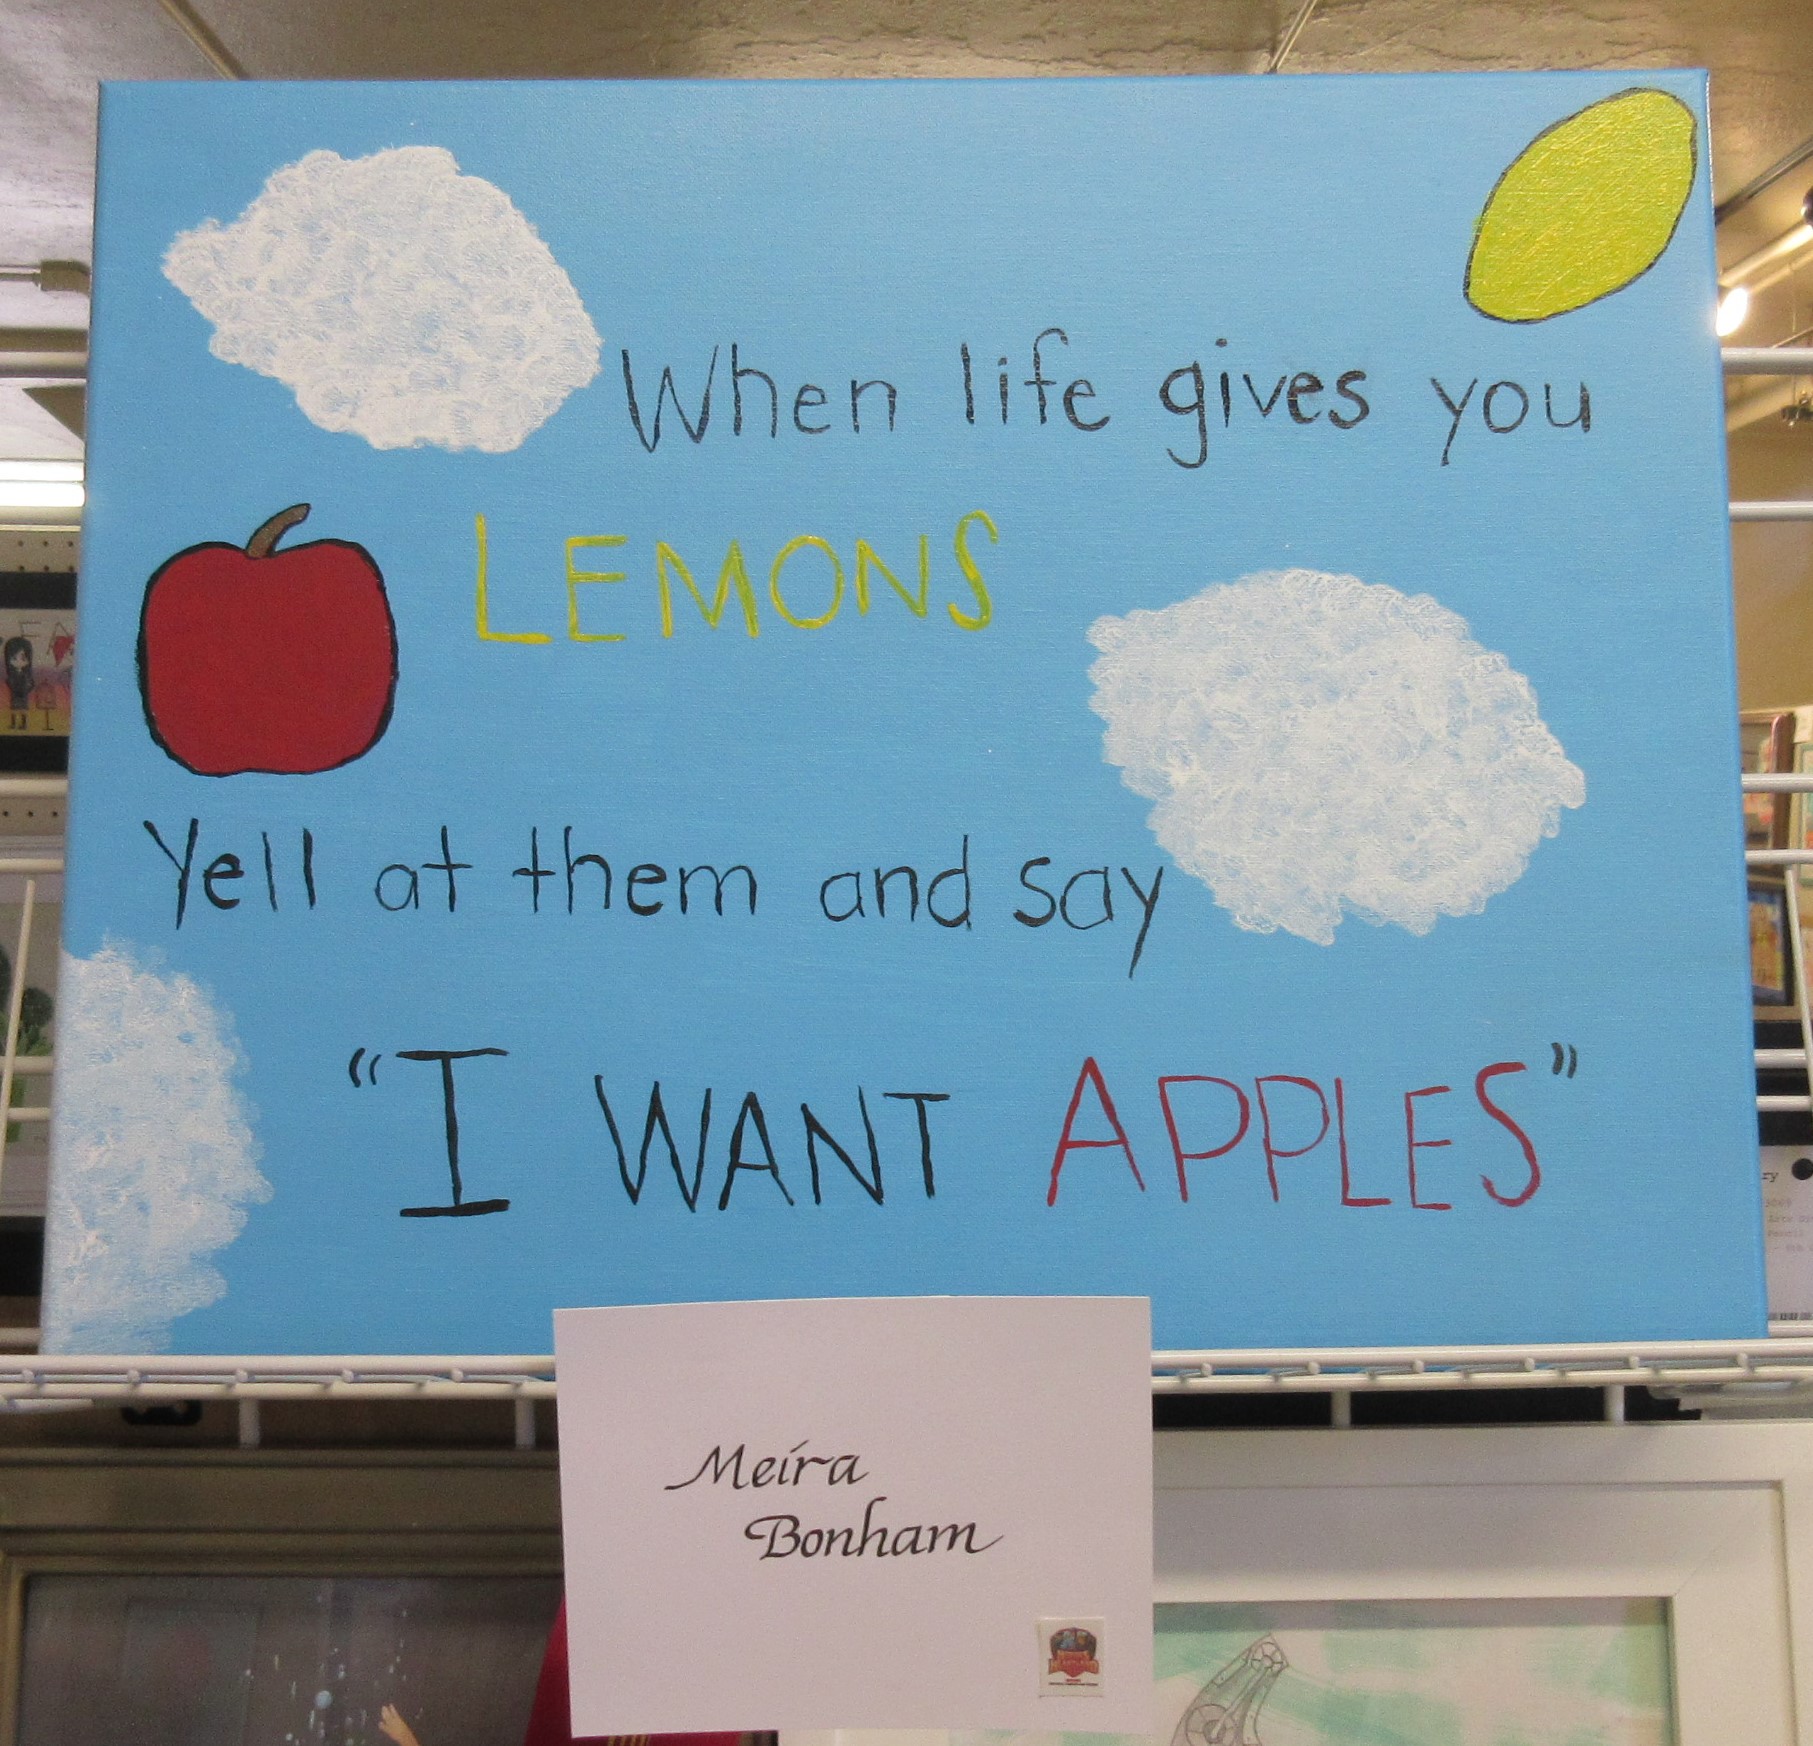 When life gives you
LEMONS
Yell at them and say
“I WANT APPLES”
Meira
Bonham